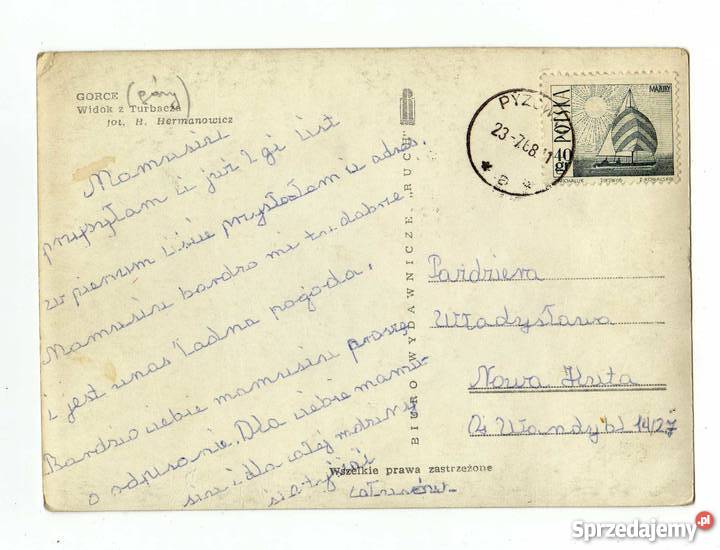 GORCE (góry)
Widok z Turbacza
fot. H. Hermanowicz
Mamusiu
przysyłam ci już 2gi list
w pierwszym liście przysłałam ci adres.
Mamusiu bardzo mi tu dobrze
i jest u nas ładna pogoda.
Bardzo ciebie mamusiu proszę
o odpisanie. Dla ciebie mamu-
siu i dla całej rodziny
całusów
BIURO WYDAWNICZE „RUCH"
Wszelkie prawa zastrzeżone
23-7.68
POLSKA
MAZURY
40 gr
Paździera
Władysława
Nowa Huta
Oś Wandy bl 14/27
Sprzedajemy.pl